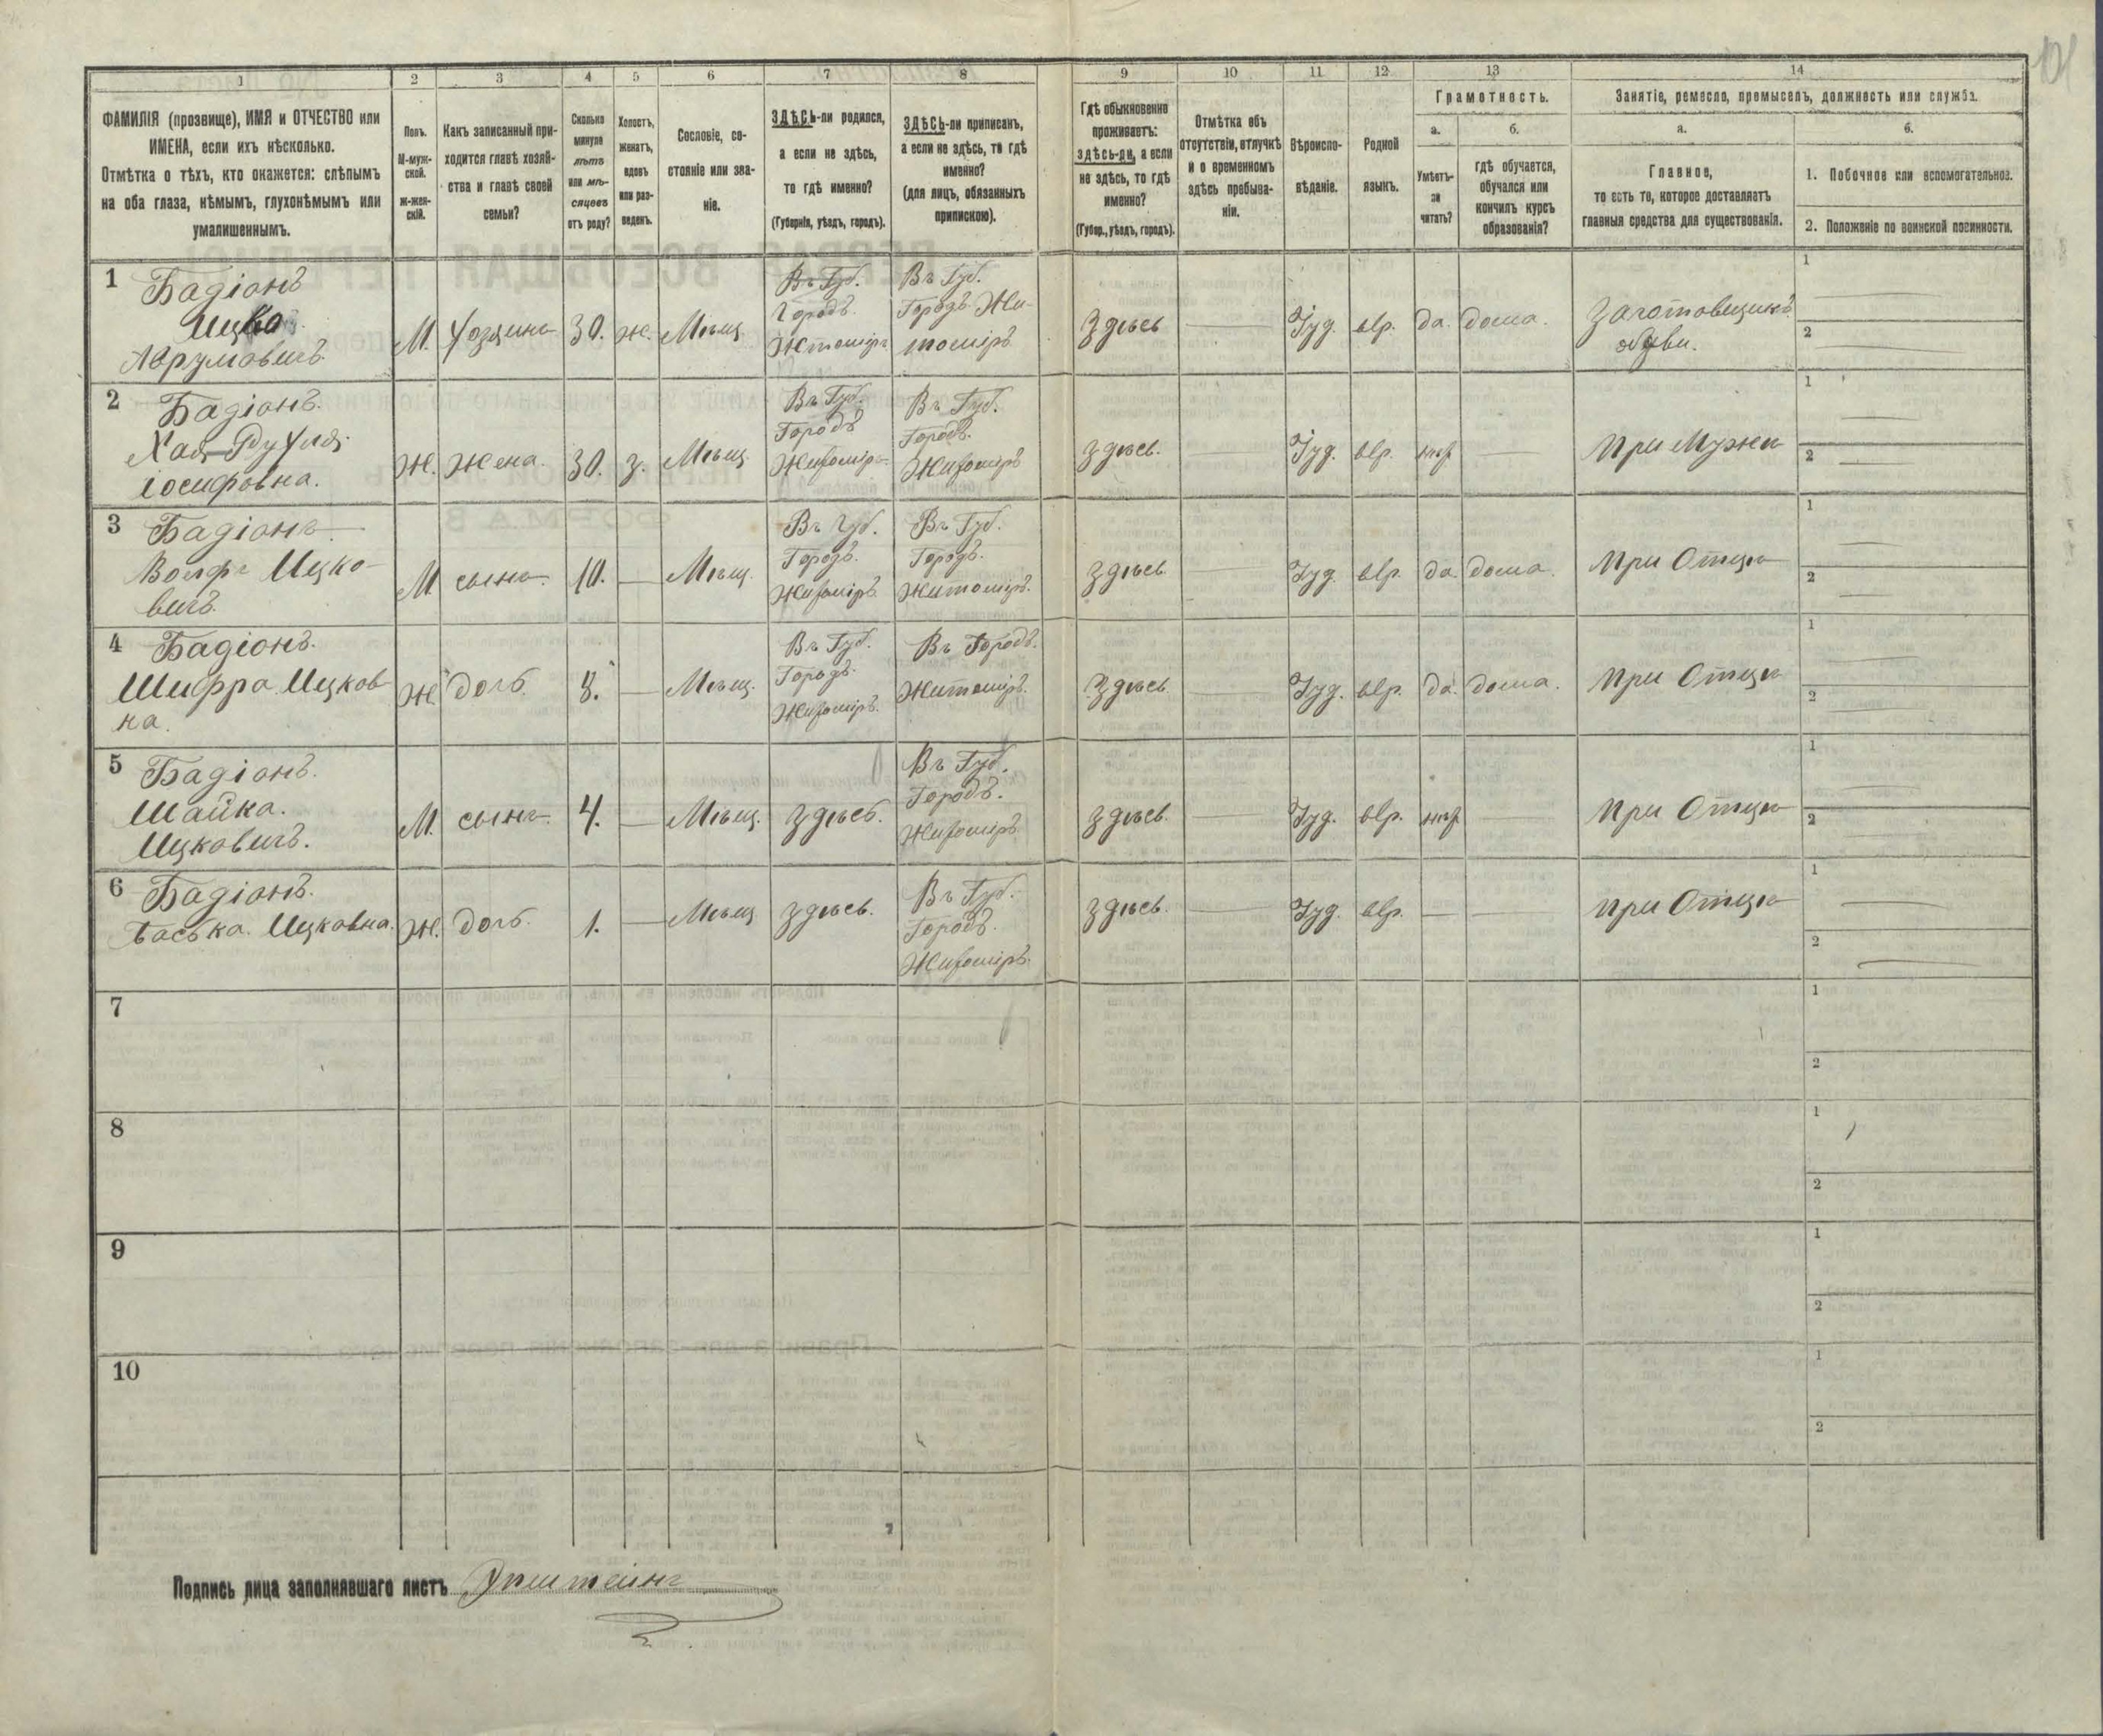 101
1 2 3 4 5 6 7 8 9 10 11 12 13 14
ФАМИЛІЯ (прозвище), ИМЯ и ОТЧЕСТВО или
ИМЕНА, если ихъ нѣсколько.
Отмѣтка о тѣхъ, кто окажется: слѣпымъ
на оба глаза, нѣмымъ, глухонѣмымъ или
умалишеннымъ.
Полъ.
М-муж-
ской.
Ж-жен-
скій.
Какъ записанный при-
ходится главѣ хозяй-
ства и главѣ своей
семьи?
Сколько
минуло
лѣтъ
или мѣ-
сяцевъ
отъ роду?
Холостъ,
женатъ,
вдовъ
или раз-
веденъ.
Сословіе, со-
стояніе или зва-
ніе.
ЗДѢСЬ-ли родился,
а если не здѣсь,
то гдѣ именно?
(Губернія, уѣздъ, городъ).
ЗДѢСЬ-ли приписанъ,
а если не здѣсь, то гдѣ
именно?
(для лицъ, обязанныхъ
припискою).
Гдѣ обыкновенно
проживаетъ:
здѣсь-ли, а если
не здѣсь, то гдѣ
именно?
(Губер., уѣздъ, городъ).
Отмѣтка объ
отсутствіи, отлучкѣ
и о временномъ
здѣсь пребыва-
ніи.
Вѣроиспо-
вѣданіе.
Родной
языкъ.
Грамотность.
а.
Умѣетъ-
ли
читать?
б.
гдѣ обучается,
обучался или
кончилъ курсъ
образованія?
Занятіе, ремесло, промыселъ, должность или служба.
а.
Главное,
то есть то, которое доставляетъ
главныя средства для существованія.
б.
1. Побочное или вспомогательное.
2. Положеніе по воинской повинности.
1 Бадіонъ
Ицко
Аврумовичъ
М. Хозяинъ 30. Ж. Мѣщ.
Въ Губ.
Городъ.
Жтомірѣ
Въ Губ.
Городъ Жи-
томіръ
Здѣсь Іуд. евр. да. дома. Заготовщикъ
обуви.
1
2
2 Бадіонъ.
Хая-Рухля
Іосифовна.
Ж. Жена. 30. З. Мѣщ
Въ Губ.
Городъ
Житоміръ
Въ Губ.
Городъ.
Житоміръ
здѣсь. Іуд. евр. нѣт при Мужѣ
1
2
3 Бадіонъ.
Волфъ Ицко-
вичъ.
М сынъ. 10. Мѣщ.
Въ Губ.
Городъ.
Житоміръ
Въ Губ.
Городъ.
Житоміръ.
здѣсь Іуд. евр. да. дома. при Отцѣ
1
2
4 Бадіонъ.
Шифра Ицков-
на.
Ж. дочь. 8. Мѣщ.
Въ Губ.
Городъ.
Житоміръ.
Въ Городъ.
Житоміръ.
Здѣсь Іуд. евр. да. дома. при Отцѣ
1
2
5 Бадіонъ.
Шайка.
Ицковичъ.
М. сынъ. 4. Мѣщ. здѣсь.
Въ Губ.
Городъ.
Житоміръ
здѣсь. Іуд. евр. нѣт при Отцѣ
1
2
6 Бадіонъ.
Баська. Ицковна.
Ж. дочь. 1. Мѣщ здѣсь.
Въ Губ.
Городъ.
Житоміръ.
здѣсь. Іуд. евр. при Отцѣ
1
2
7
1
2
8
1
2
9
1
2
10
1
2
Подпись лица заполнявшаго листъ